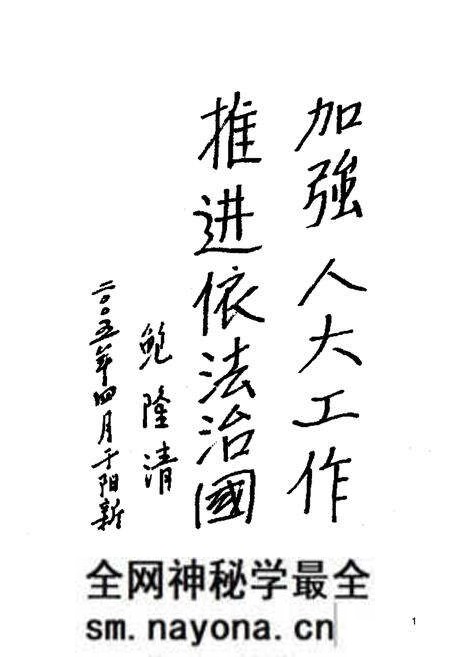 加強人大工作
推进依法治國
鲍隆清
二〇〇五年四月于阳新
全网神秘学最全
sm.nayona.cn
1